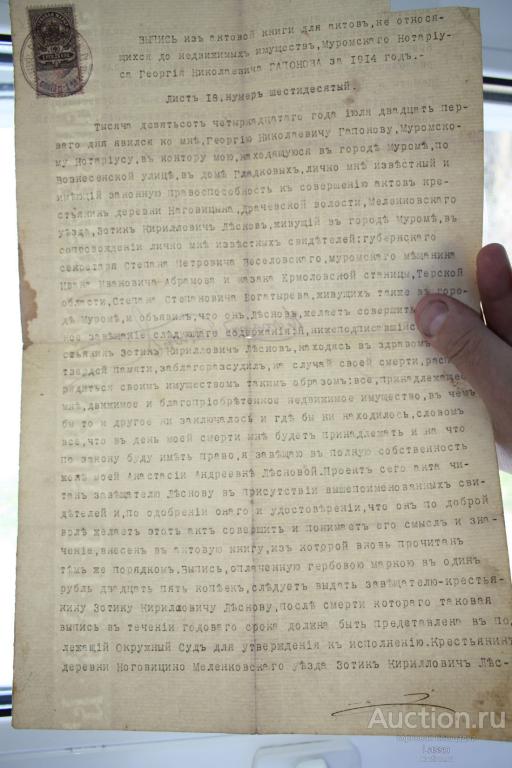 ВЫПИСЬ изъ актовой книги для актовъ, не относя-
щихся до недвижимыхъ имуществъ, Муромскаго Нотаріу-
са Георгія Николаевича ГАПОНОВА за 1914 годъ.-
Листъ 18, нумеръ шестидесятый.
Тысяча девятьсотъ четырнадцатаго года іюля двадцать пер-
ваго дня явился ко мнѣ, Георгію Николаевичу Гапонову, Муромско-
му Нотаріусу, въ контору мою, находящуюся въ городѣ Муромѣ, по
Вознесенской улицѣ, въ домѣ Гладковыхъ, лично мнѣ извѣстный и
имѣющій законную правоспособность къ совершенію актовъ кре-
стьянинъ деревни Наговицына, Драчевской волости, Меленковскаго
уѣзда, Зотикъ Кирилловичъ Лѣсновъ, живущій въ городѣ Муромѣ, въ
сопровожденіи лично мнѣ извѣстныхъ свидѣтелей: губернскаго
секретаря Степана Петровича Веселовскаго, муромскаго мѣщанина
Ивана Ивановича Абрамова и казака Ермоловской станицы, Терской
области, Степана Степановича Богатырева, живущихъ также въ горо-
дѣ Муромѣ, и объявилъ, что онъ, Лѣсновъ, желаетъ совершить
ное завѣщаніе слѣдующаго содержанія: нижеподписавшійс
стьянинъ Зотикъ Кирилловичъ Лѣсновъ, находясь въ здравомъ
твердой памяти, заблагоразсудилъ, на случай своей смерти, расп
рядиться своимъ имуществомъ такимъ образомъ: все, принадлежащее
мнѣ, движимое и благопріобрѣтенное недвижимое имущество, въ чемъ
бы то и другое ни заключалось и гдѣ бы ни находилось, словомъ
все, что въ день моей смерти мнѣ будетъ принадлежать и на что
по закону буду имѣть право, я завѣщаю въ полную собственность
женѣ моей Анастасіи Андреевнѣ Лѣсновой. Проектъ сего акта чи-
танъ завѣщателю Лѣснову въ присутствіи вышепоименованныхъ сви-
дѣтелей и, по одобреніи онаго и удостовѣреніи, что онъ по доброй
волѣ желаетъ этотъ актъ совершить и понимаетъ его смыслъ и зна-
ченіе, внесенъ въ актовую книгу, изъ которой вновь прочитанъ
тѣмъ же порядкомъ. Выпись, оплаченную гербовою маркою въ одинъ
рубль двадцать пять копѣекъ, слѣдуетъ выдать завѣщателю-крестья-
нину Зотику Кирилловичу Лѣснову, послѣ смерти котораго таковая
выпись въ теченіи годоваго срока должна быть представлена въ под
лежащій Окружный Судъ для утвержденія къ исполненію. Крестьянинъ
деревни Ноговицино Меленковскаго уѣзда Зотикъ Кирилловичъ Лѣс-
Auction.ru